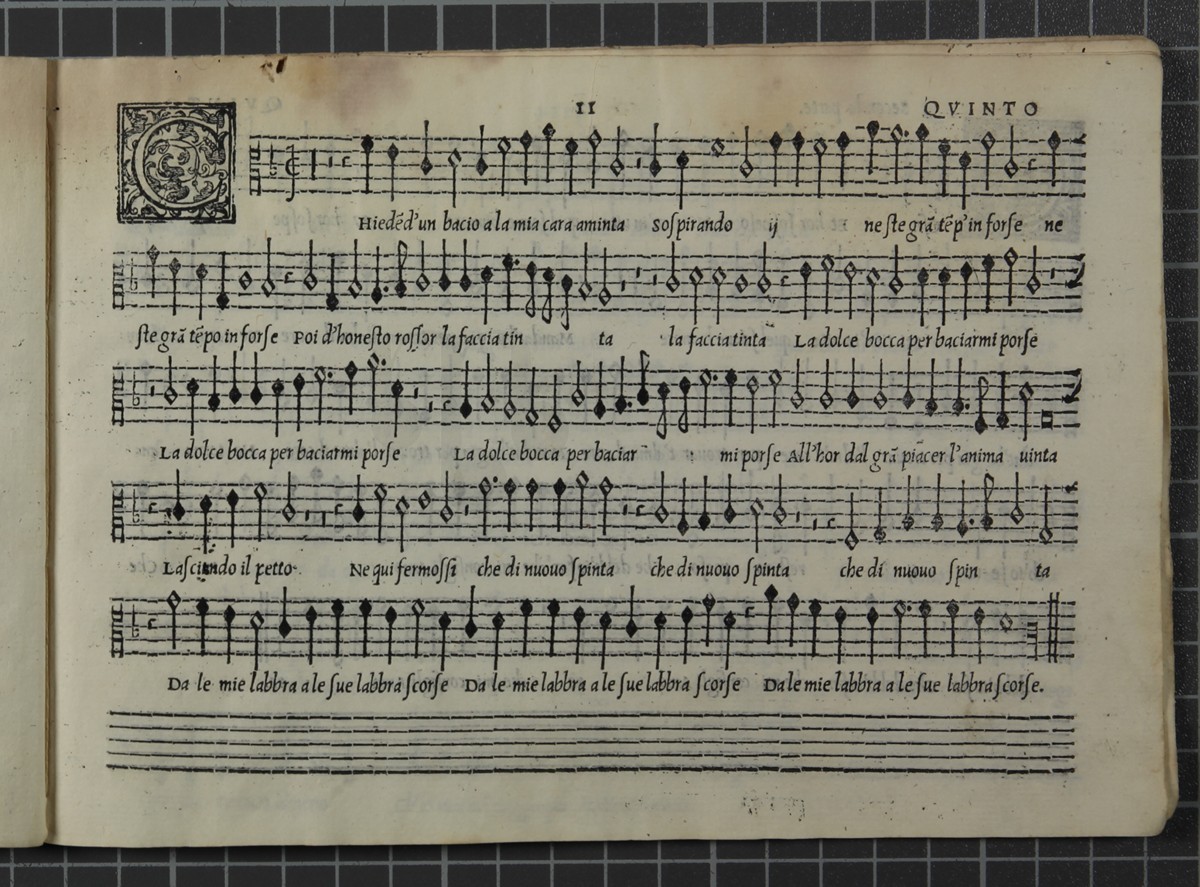 11 QVINTO
CHiedẽd'un bacio a la mia cara aminta Sospirando ij ne ste grã tẽp'in forse ne
ste grã tẽpo in forse Poi d'honesto rossor la faccia tin ta la faccia tinta La dolce bocca per baciarmi porse
La dolce bocca per baciarmi porse La dolce bocca per baciar mi porse All'hor dal grã piacer l'anima uinta
Lasciando il petto Ne qui fermossi che di nuouo spinta che di nuouo spinta che di nuouo spin ta
Da le mie labbra a le sue labbra scorse Da le mie labbra a le sue labbra scorse Da le mie labbra a le sue labbra scorse.